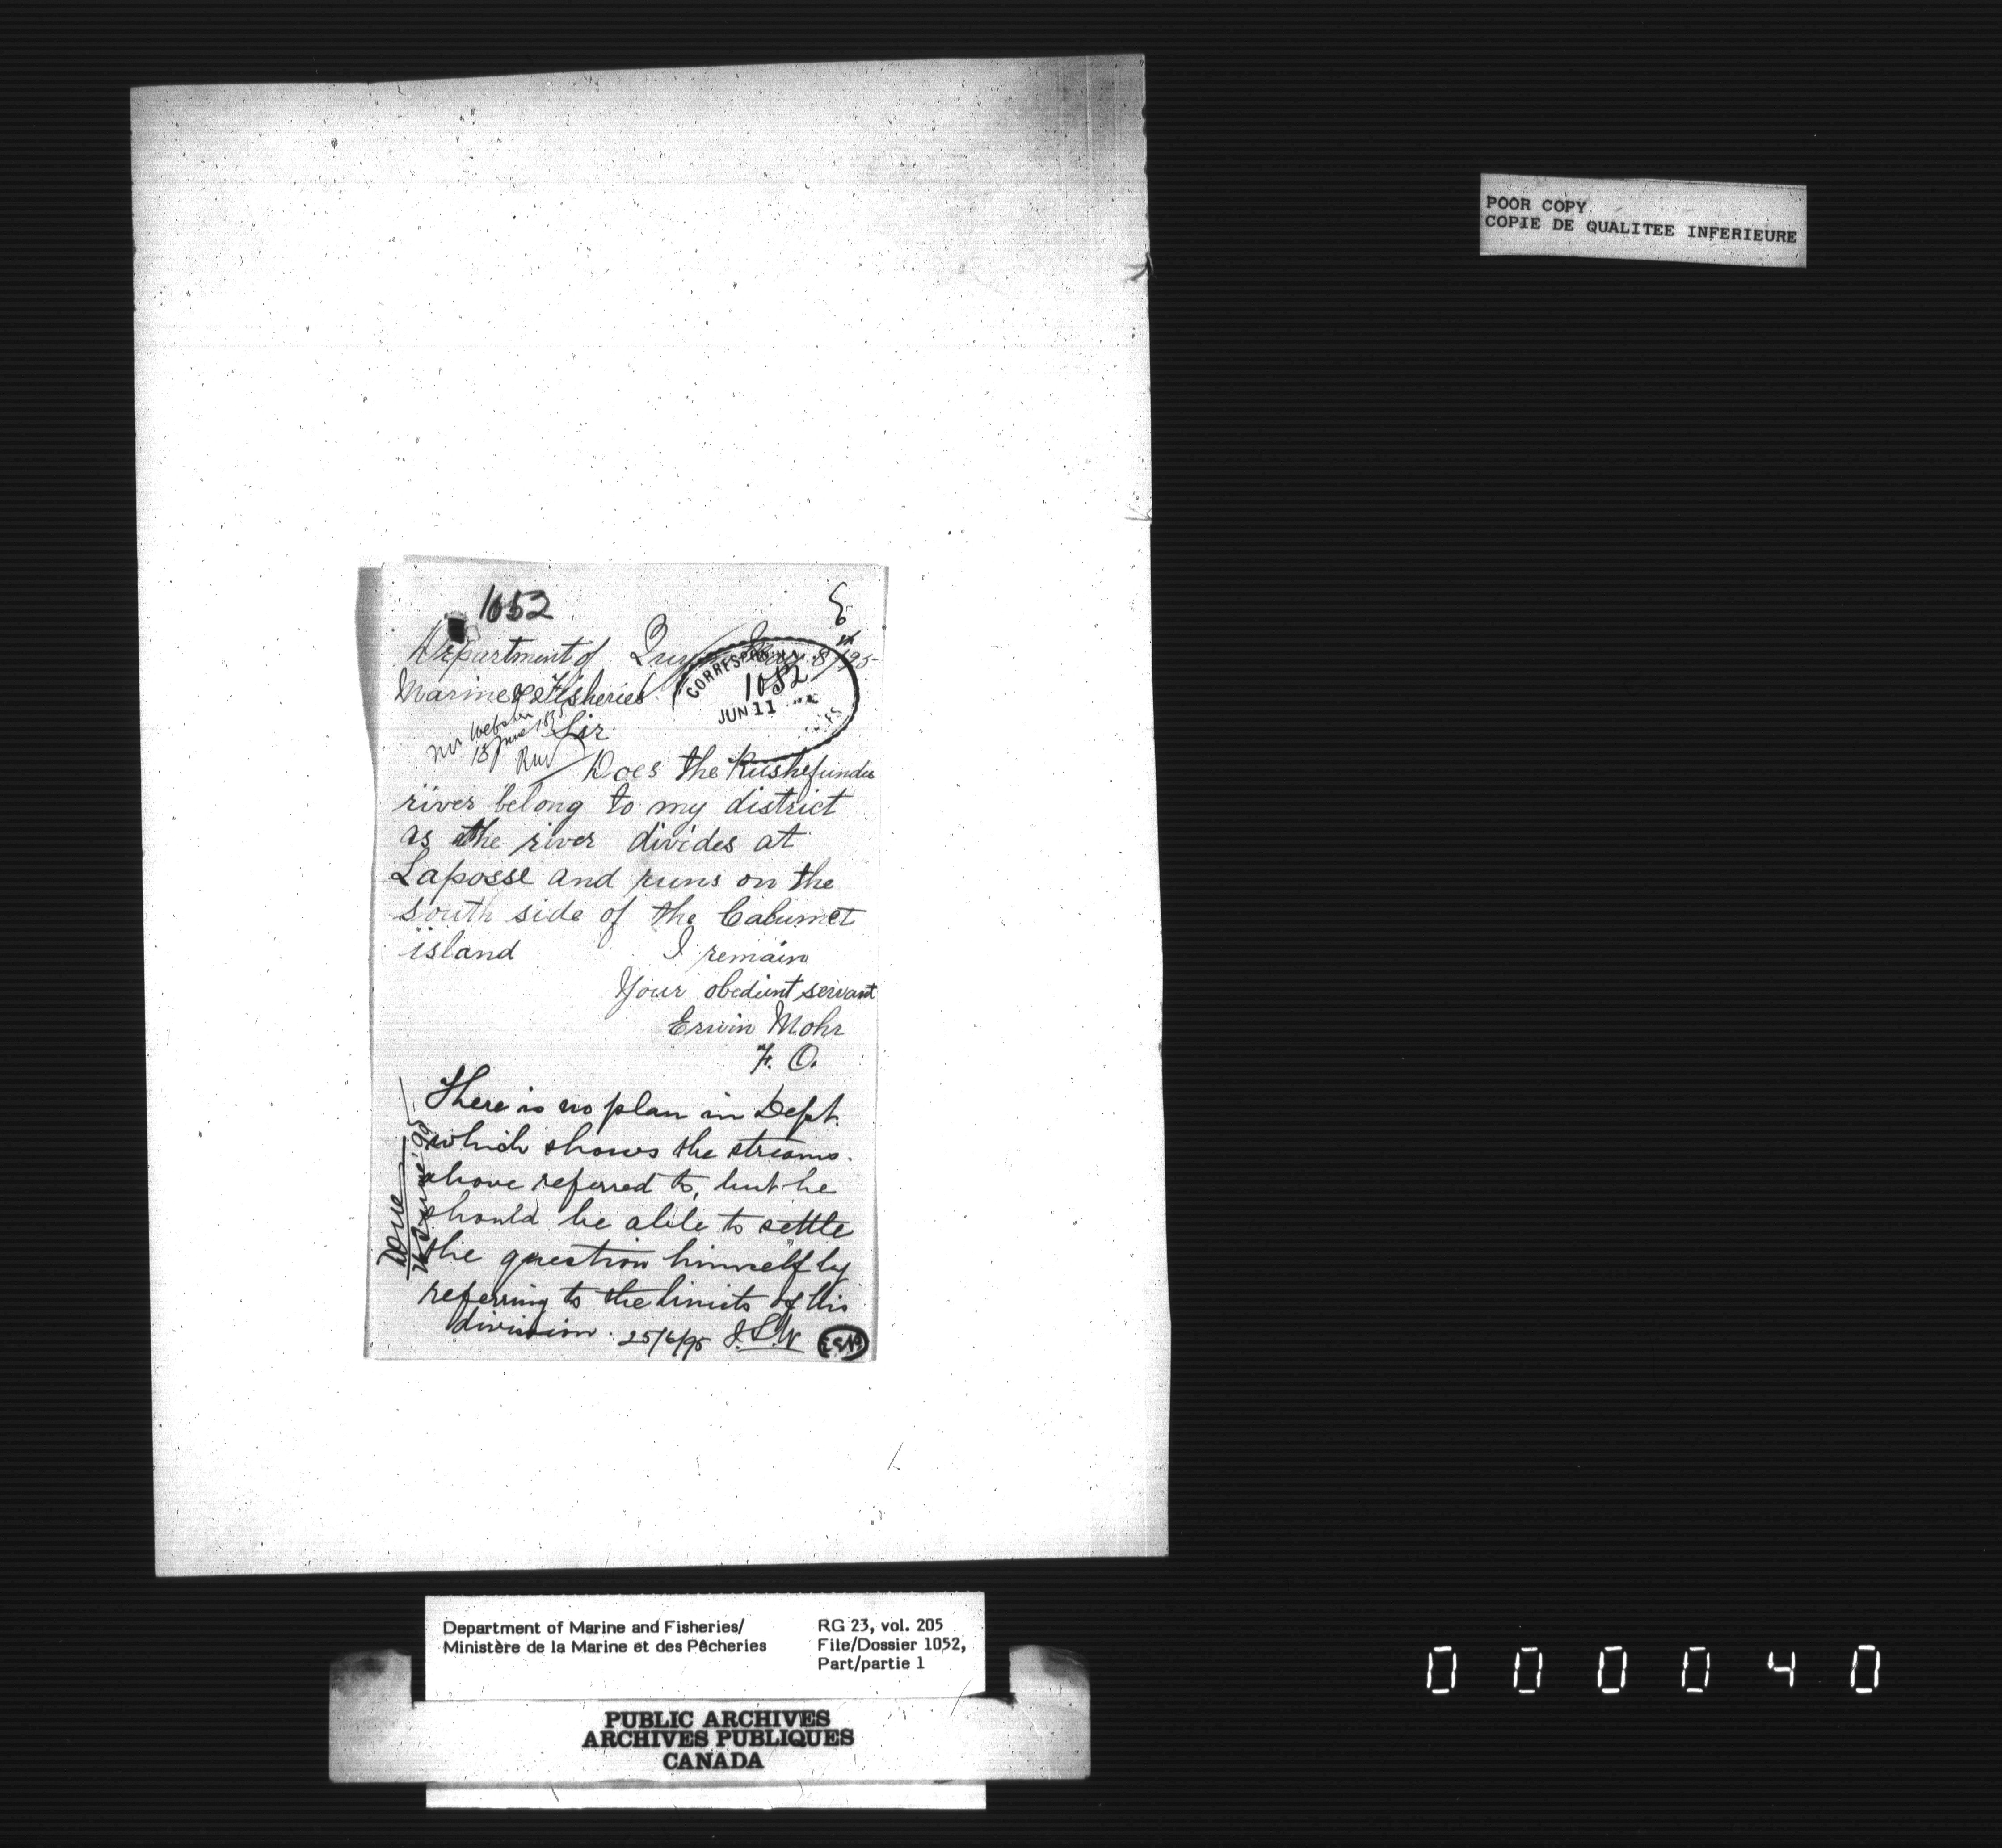 POOR COPY
COPIE DE QUALITEE INFERIEURE
1052
Department of
8th/95
Marine & Fisheries
CORRESPON
1052
JUN 11
Sir
Mr Webster
18 June 1895
Does the Rushefundu
river belong to my district
as the river divides at
Laposse and runs on the
south side of the Calumet
island I remain
Your obedient servant
Erwin Mohr
F. O.
There is no plan in Dept.
which shows the streams
above referred to, but he
should be able to settle
the question himself by
referring to the limits of his
division. 25/6/95 J.S.W
Done
Department of Marine and Fisheries/
Ministère de la Marine et des Pêcheries
RG 23, vol. 205
File/Dossier 1052,
Part/partie 1
PUBLIC ARCHIVES
ARCHIVES PUBLIQUES
CANADA
000040